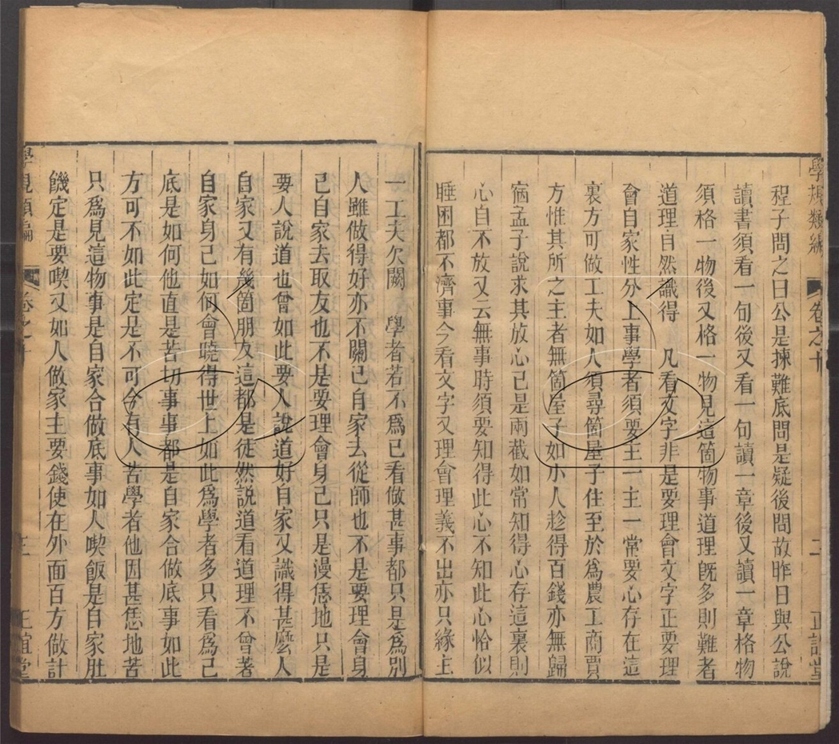 學規類編 卷之十 二 正誼堂
程子問之曰公是揀難底問是疑後問故昨日與公說
讀書須看一句後又看一句讀一章後又讀一章格物
須格一物後又格一物見這箇物事道理旣多則難者
道理自然識得 凡看文字非是要理會文字正要理
會自家性分上事學者須要主一主一常要心存在這
裏方可做工夫如人須尋箇屋子住至於爲農工商賈
方惟其所之主者無箇屋子如小人趁得百錢亦無歸
宿孟子說求其放心已是兩截如常知得心存這裏則
心自不放又云無事時須要知得此心不知此心恰似
睡困都不濟事今看文字又理會理義不出亦只緣主
一工夫欠闕 學者若不爲己看做甚事都只是爲別
人雖做得好亦不關己自家去從師也不是要理會身
己自家去取友也不是要理會身己只是漫恁地只是
要人說道也曾如此要人說道好自家又識得甚麽人
自家又有幾箇朋友這都是徒然說道看道理不曾著
自家身己如何會曉得世上如此爲學者多只看爲己
底是如何他直是苦切事事都是自家合做底事如此
方可不如此定是不可今有人苦學者他因甚恁地苦
只爲見這物事是自家合做底事如人喫飯是自家肚
饑定是要喫又如人做家主要錢使在外面百方做計
學規類編 卷之十 三 正誼堂